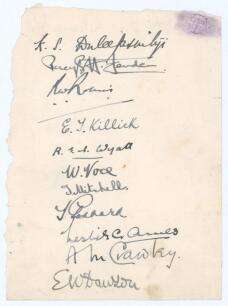 K. S. Duleepsinhji
Percy G. H. Fender
R.W. Robins
E. T. Killick
R. E. S. Wyatt
W. Voce
T. Mitchell
Leslie G. Ames
A M Crawley.
E W Dawson